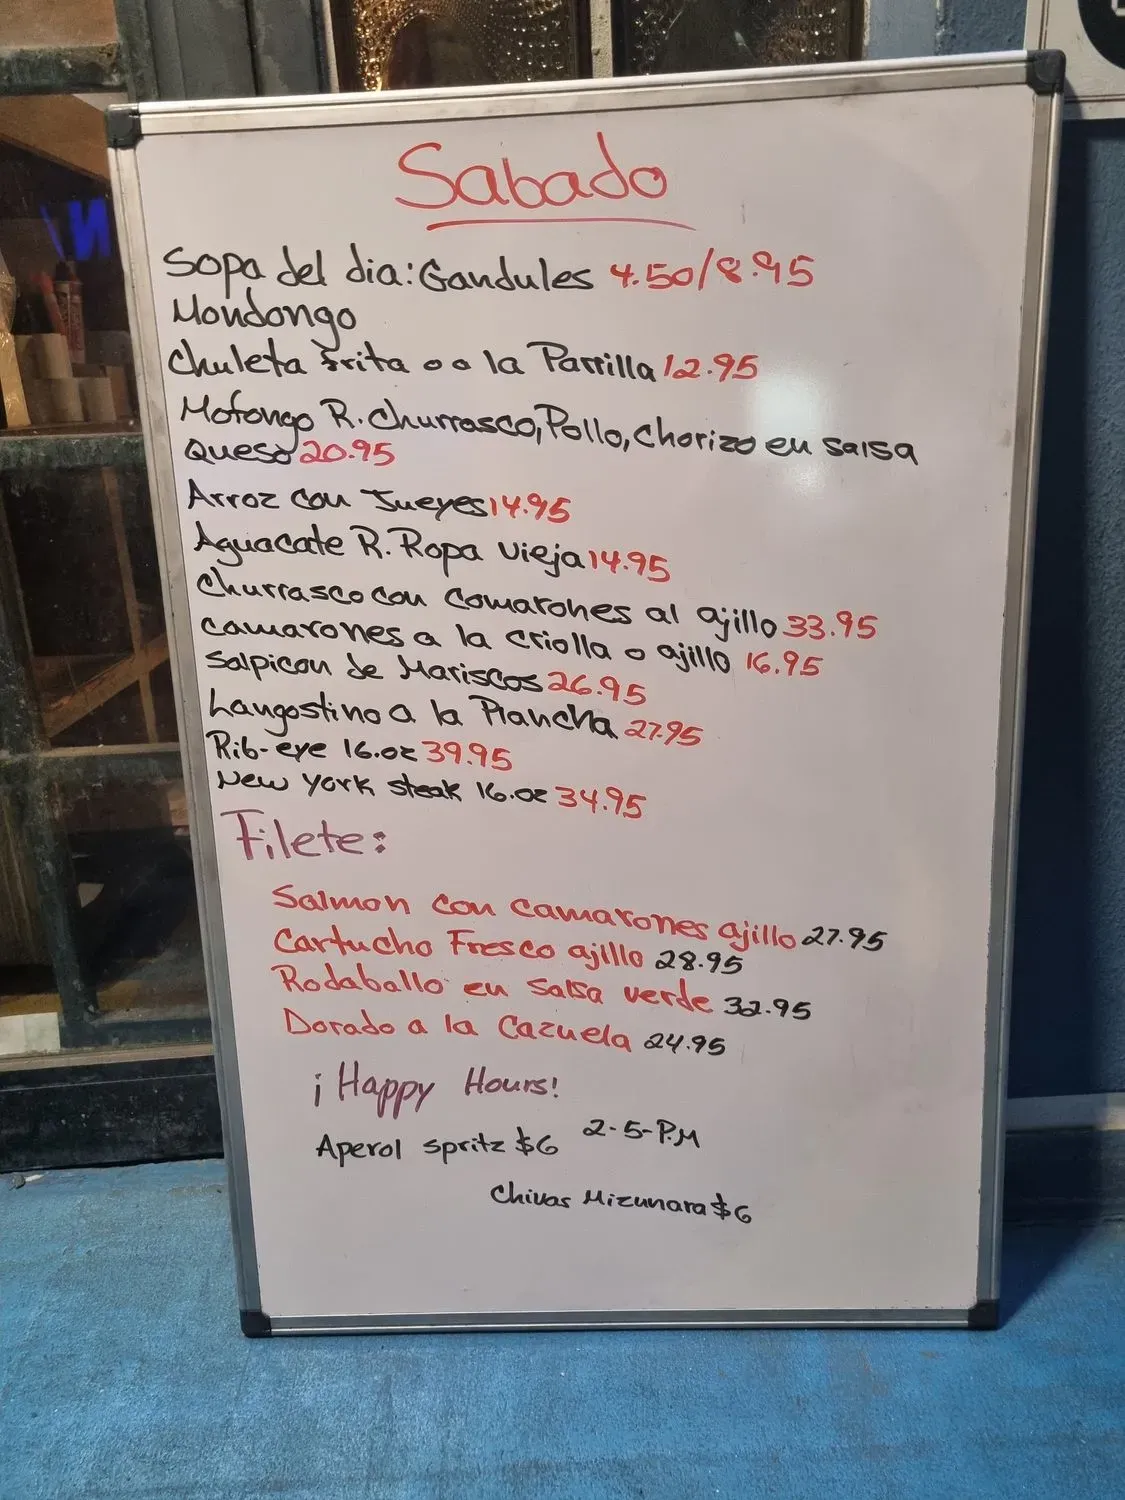 Sabado
Sopa del dia: Gandules 4.50/8.95
Mondongo
Chuleta frita o a la Parrilla 12.95
Mofongo R. Churrasco, Pollo, Chorizo en salsa
Queso 20.95
Arroz con Jueyes 14.95
Aguacate R. Ropa vieja 14.95
Churrasco con camarones al ajillo 33.95
Camarones a la criolla o ajillo 16.95
Salpicon de Mariscos 26.95
Langostino a la Plancha 27.95
Rib-eye 16.oz 39.95
New York steak 16.oz 34.95
Filete:
Salmon con camarones ajillo 27.95
Cartucho Fresco ajillo 28.95
Rodaballo en salsa verde 32.95
Dorado a la Cazuela 24.95
¡Happy Hours!
Aperol spritz $6 2-5-P.M
Chivas Mizunara $6